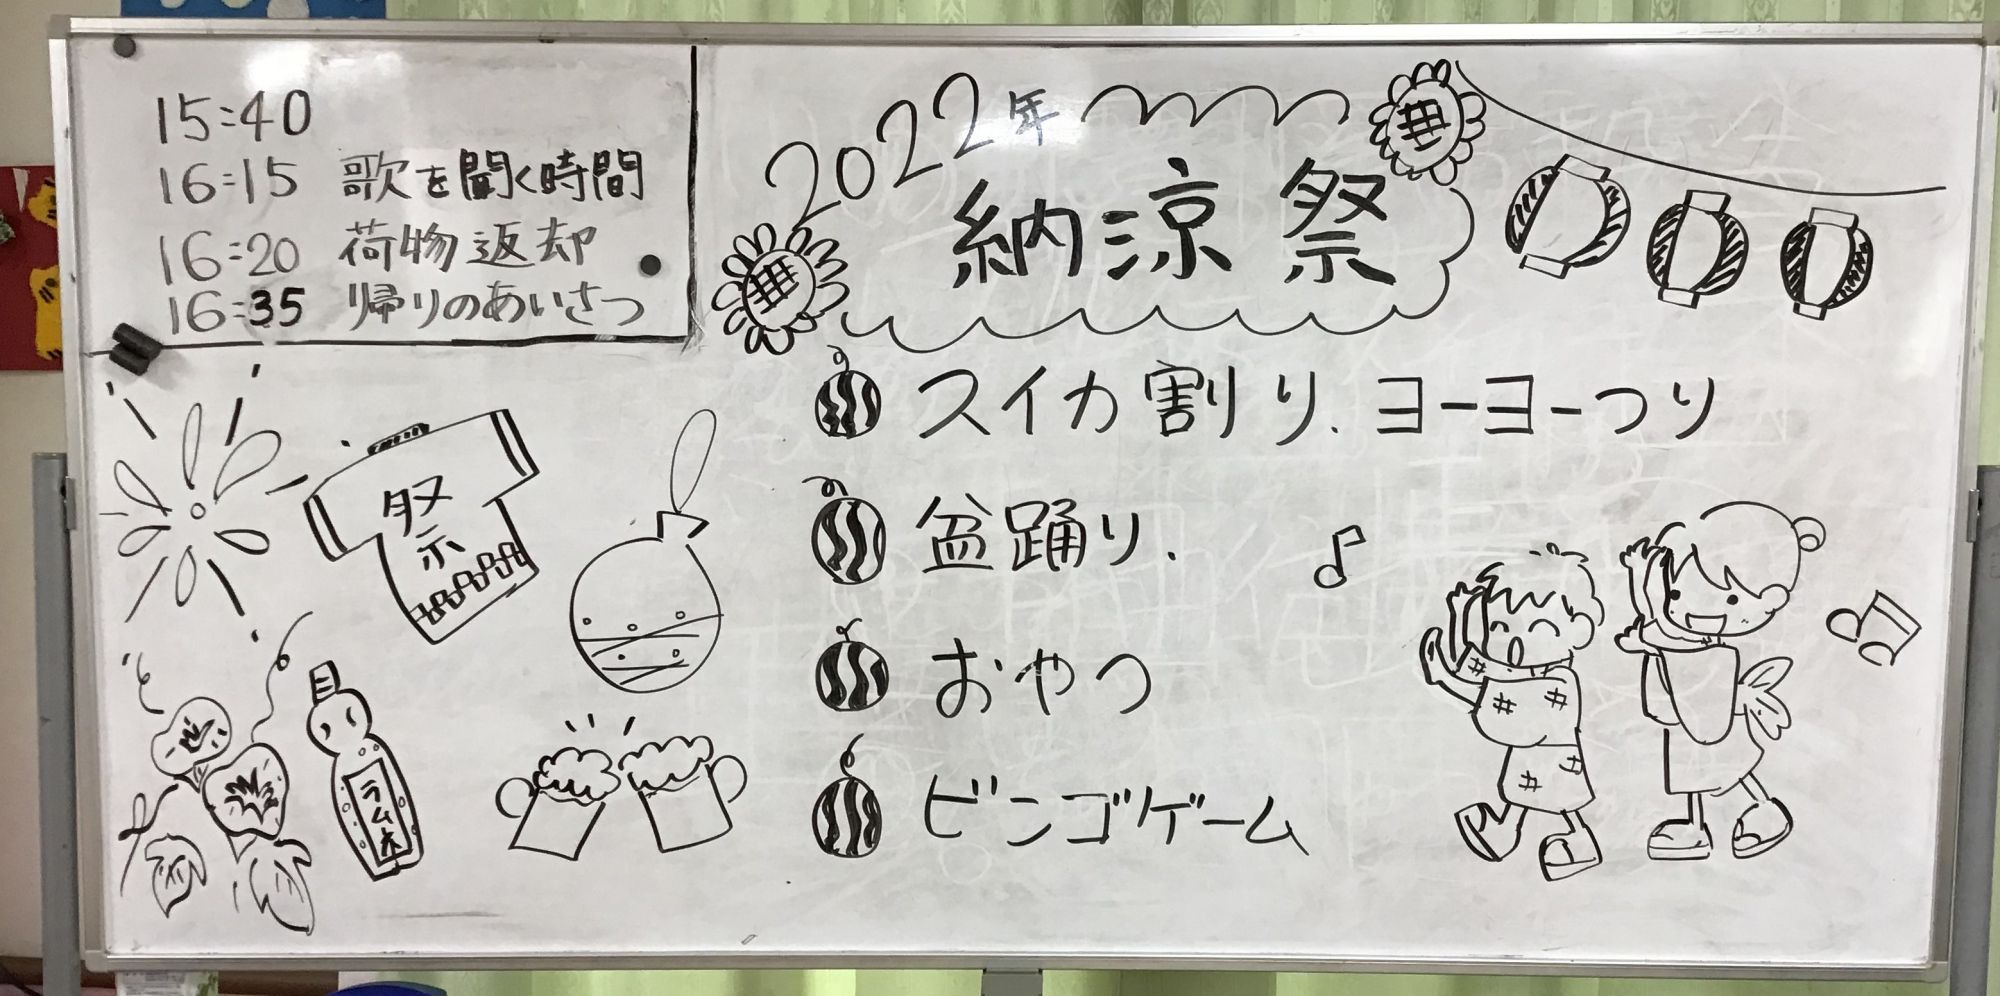 15:40
16:15 歌を聞く時間
16:20 荷物返却
16:35 帰りのあいさつ
2022年
納涼祭
スイカ割り.ヨーヨーつり
盆踊り.
おやつ
ビンゴゲーム
祭
ラムネ